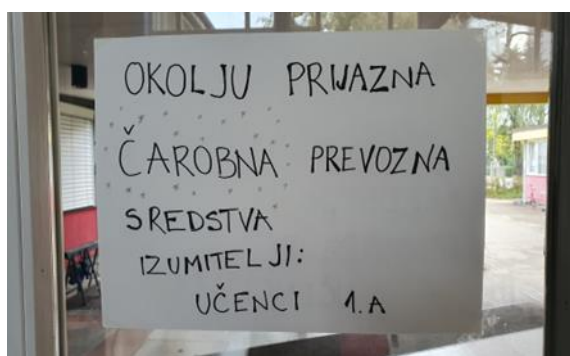 OKOLJU PRIJAZNA
ČAROBNA PREVOZNA
SREDSTVA
IZUMITELJI:
UČENCI 1.A